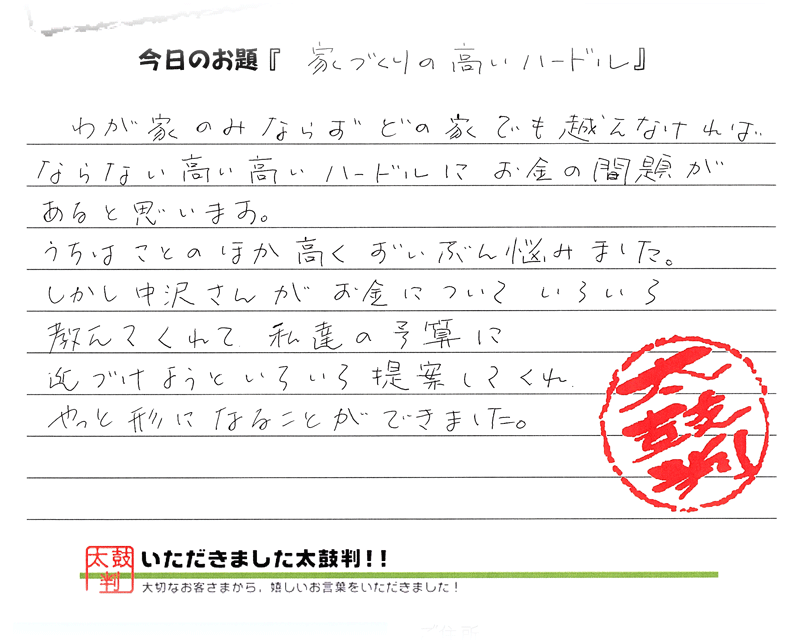 今日のお題『 家づくりの高いハードル』
わが家のみならずどの家でも越えなければ
ならない高い高いハードルにお金の問題が
あると思います。
うちはことのほか高くずいぶん悩みました。
しかし中沢さんがお金についていろいろ
教えてくれて、私達の予算に
近づけようといろいろ提案してくれ、
やっと形になることができました。
太
鼓
判
太鼓
判
いただきました太鼓判!!
大切なお客さまから、嬉しいお言葉をいただきました!